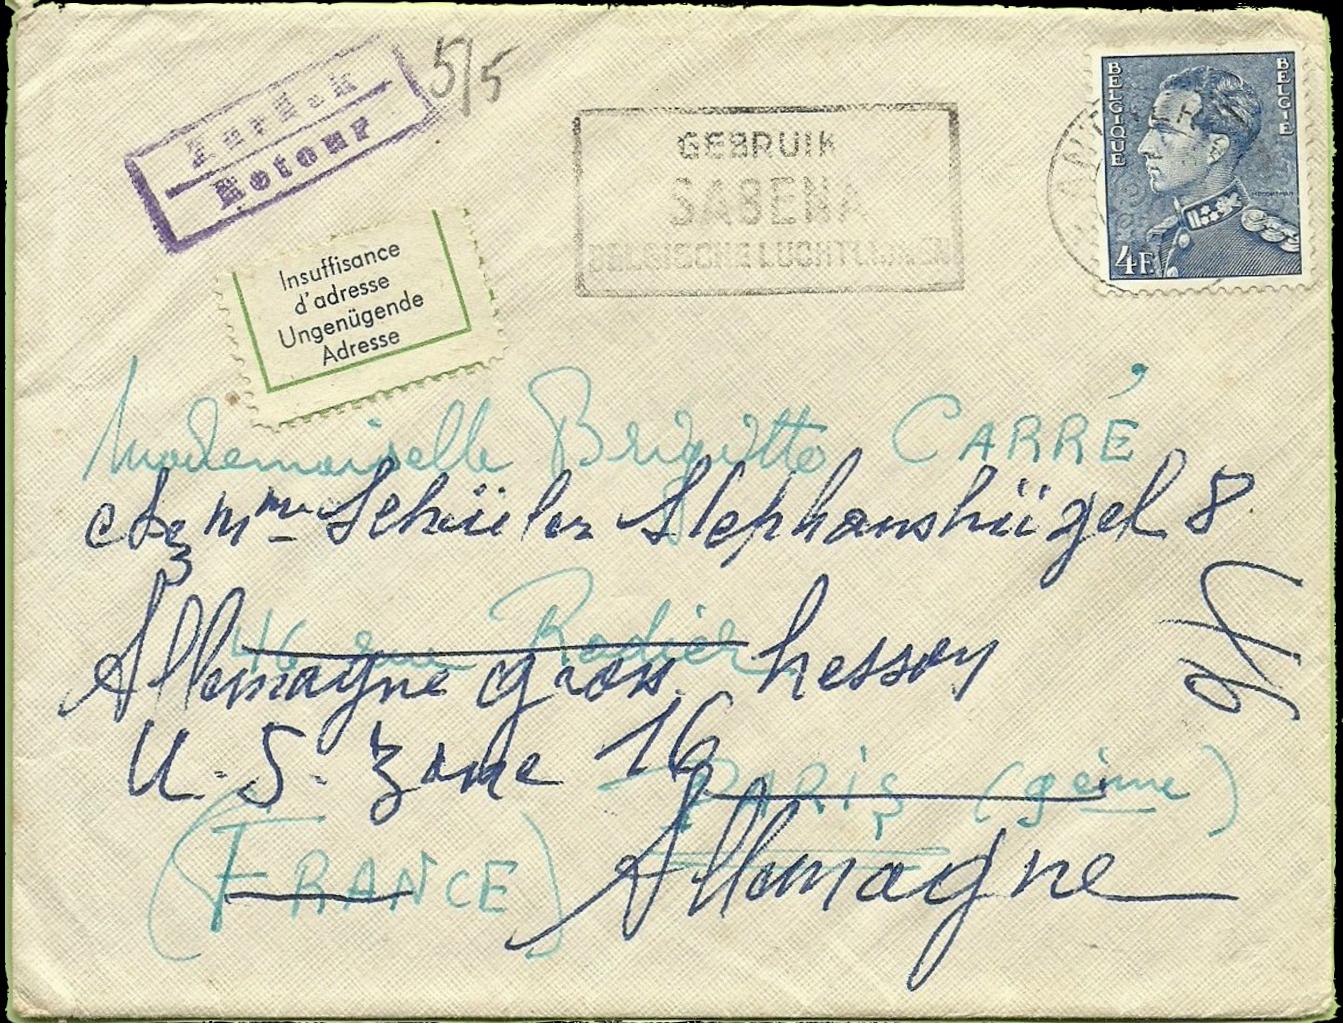 Zurück
Retour
5/5
GEBRUIK
SABENA
BELGISCHE LUCHTLIJNEN
BELGIQUE
BELGIE
4F
ANTWER
Insuffisance
d'adresse
Ungenügende
Adresse
Mademoiselle Brigitte CARRÉ
chez Mme Schüler Stephanshügel 8
46 rue Rodier
Allemagne gross hessen
U.S. Zone 16
PARIS (9ème)
(FRANCE)
Allemagne